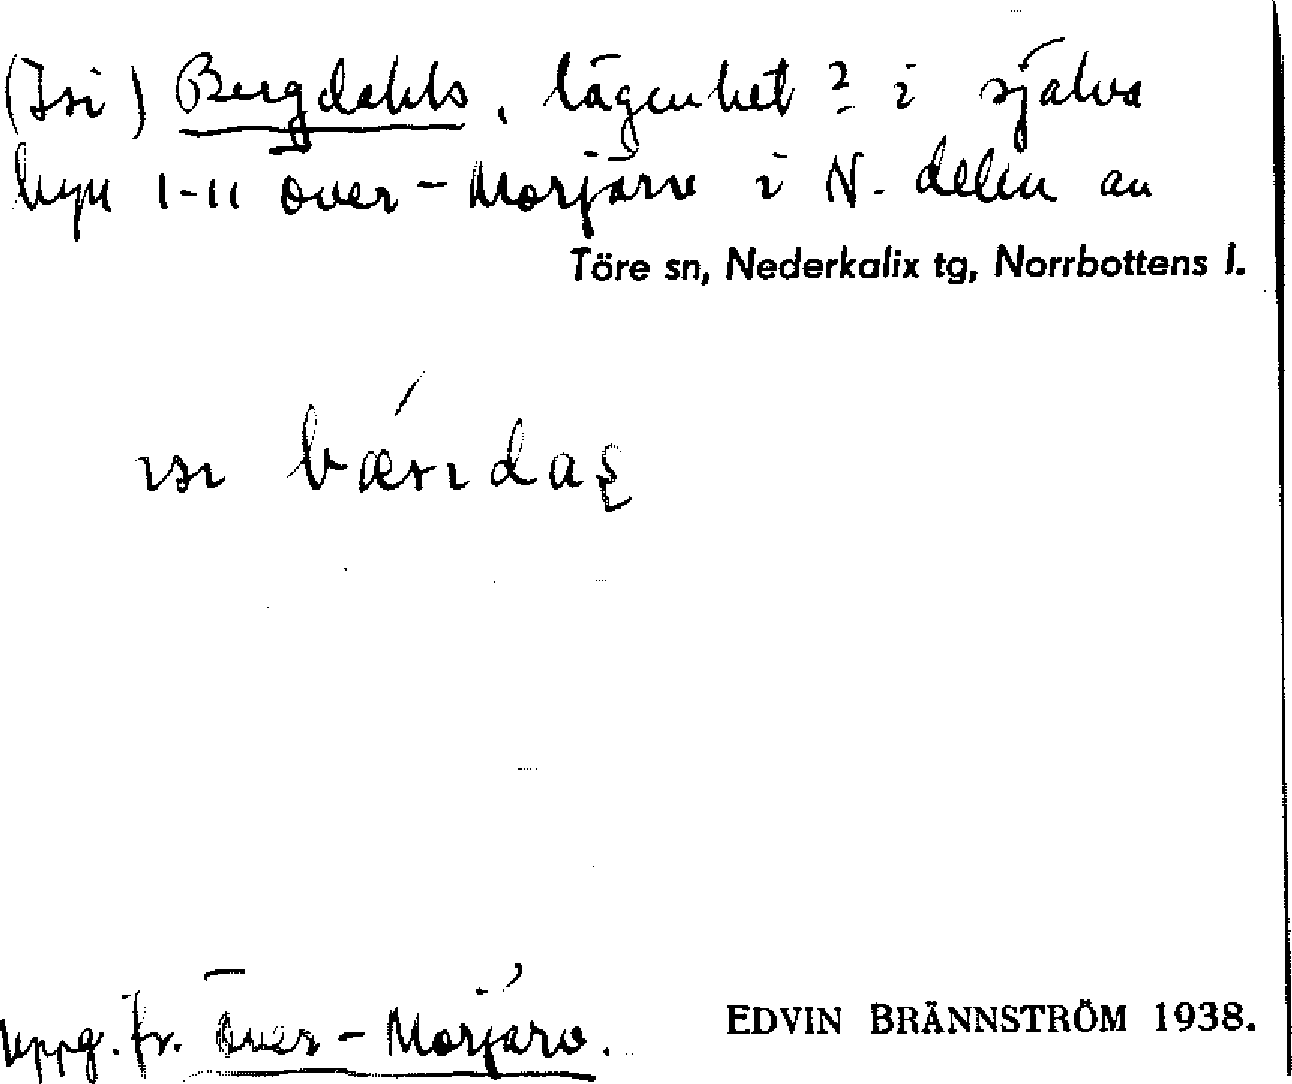 (Isi) Bergdahls, lägenhet? i själva
byn 1-11 Över-Morjärv i N. delen av
Töre sn, Nederkalix tg, Norrbottens l.
uppg. fr. Över-Morjärv.
EDVIN BRÄNNSTRÖM 1938.